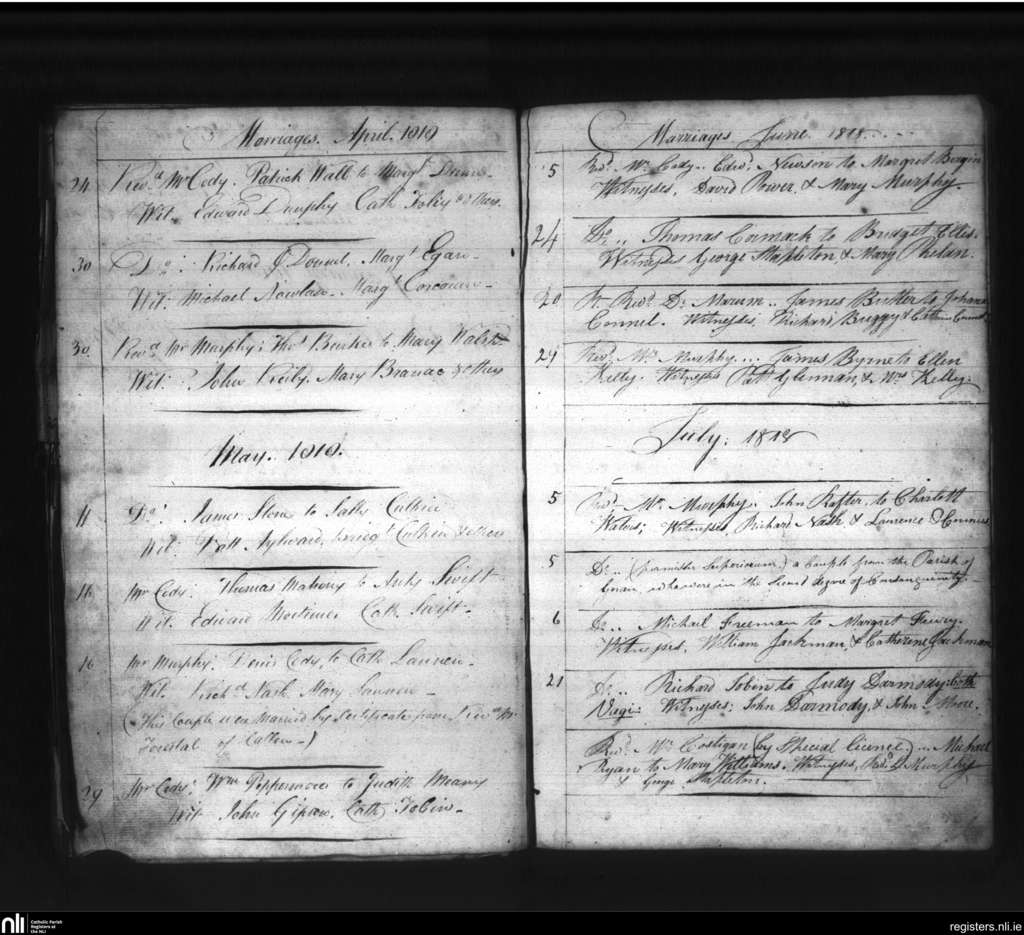 Marriages. April. 1818
24 Revd. Mr Cody. Patrick Wall to Margt
Wit. Edward Dunphy Cath Foley & others
30 Do: Richard O Donnel. Margt Egan
Wit: Michael Nowlan. Margt Corcoran
30 Revd. Mr Murphy: Thos Burke to Mary Walsh
Wit: John Reily, Mary & others
May. 1818.
11 Do: James to Sally
Wit: Patt Aylward, & others
16 Mr Cody: Thomas Mahony to Swift
Wit. Edward Mortimer Cath. Swift
16 Mr Murphy: Denis Cody, to Cath Lannen
Wit. Richd Nash Mary Lannen
(This Couple were Married by Certificate from Revd Mr
Forestal of Callan)
29 Mr Cody: Wm to Judith Meany
Wit John Cath Tobin
Marriages June 1818
5 Revd. Mr Cody. Edwd. Newson to Margret Bergin
Witnesses, David Power, & Mary Murphy.
24 Do.. Thomas Cormack to Bridget Ellis.
Witnesses George Stapleton, & Mary Phelan.
20 Rt. Revd. Dr Marum.. James Butler to Johana
Connel. Witnesses, Richard Buggy &
29 Revd. Mr Murphy.... James Byrne to Ellen
Kelly. Witnesses Patt Glennan, & Mrs Kelly.
July: 1818
5 Revd. Mr Murphy. John Rafter, to Charlott
Waters; Witnesses, Richard Nash & Laurence
5 Do.. (permissu Superiorum) a Couple from the Parish of
who were in the Second degree of Consanguinity.
6 Do.. Michael Freeman to Margret
Witnesses, William Jackman, & Catherine Jackman
21 Do.. Richard Tobin to Judy Darmody: both
Witnesses: John Darmody, & John Moore.
Revd. Mr Costigan (by Special licence)... Michael
Ryan to Mary Williams. Witnesses, Revd. D Murphy
& George Stapleton.
nli
Catholic Parish
Registers at
the NLI
registers.nli.ie